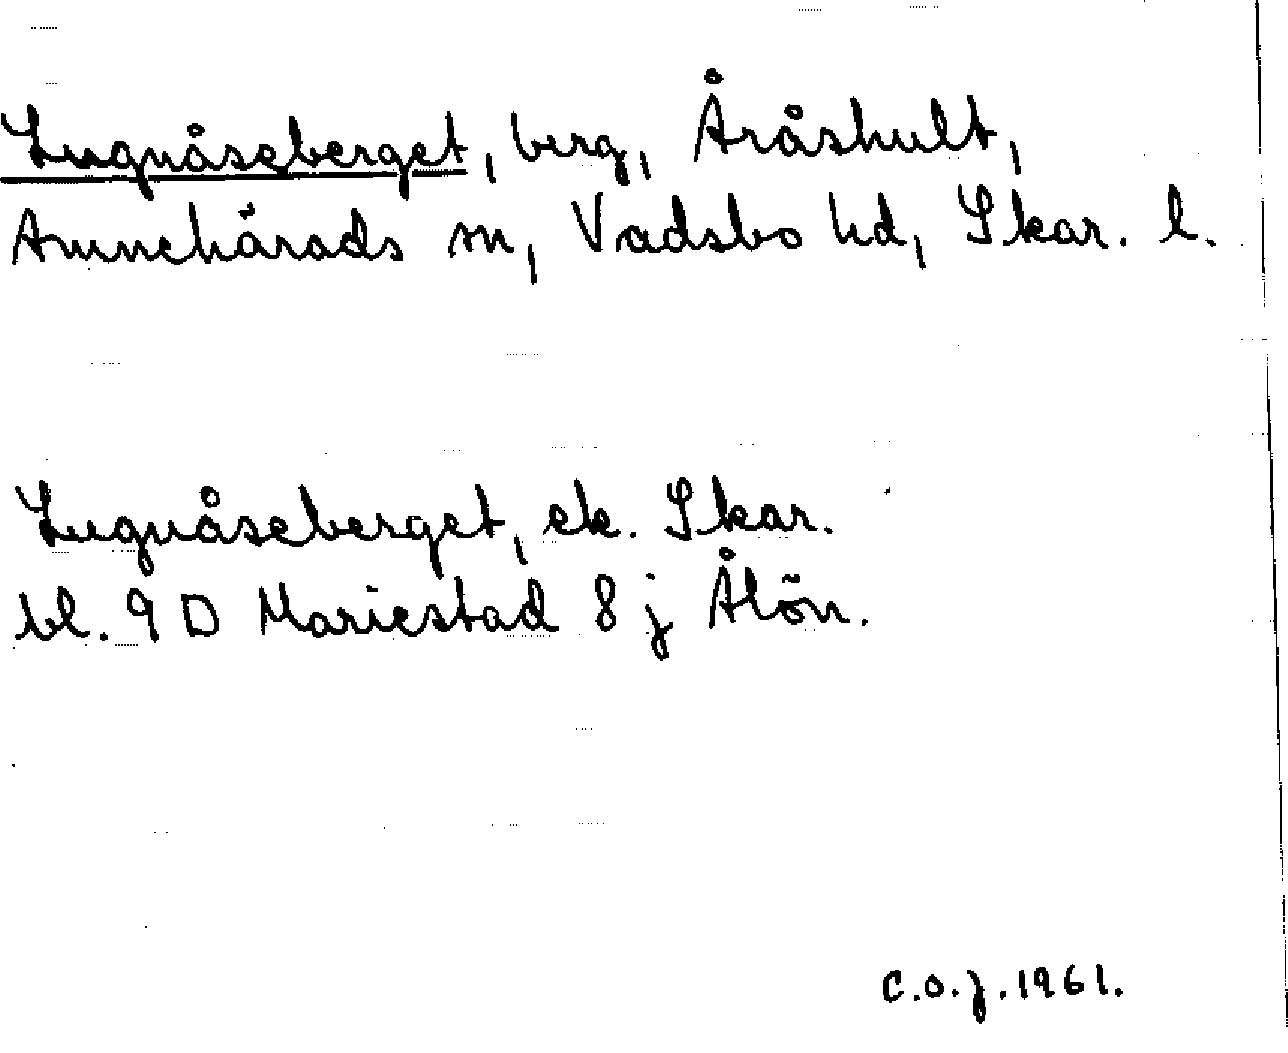 Lugnåseberget, berg, Åråshult,
Amnehärads sn, Vadsbo hd, Skar. l.
Lugnåseberget, ek. Skar.
bl. 9 D Mariestad 8 j Ålön.
C.O.J. 1961.